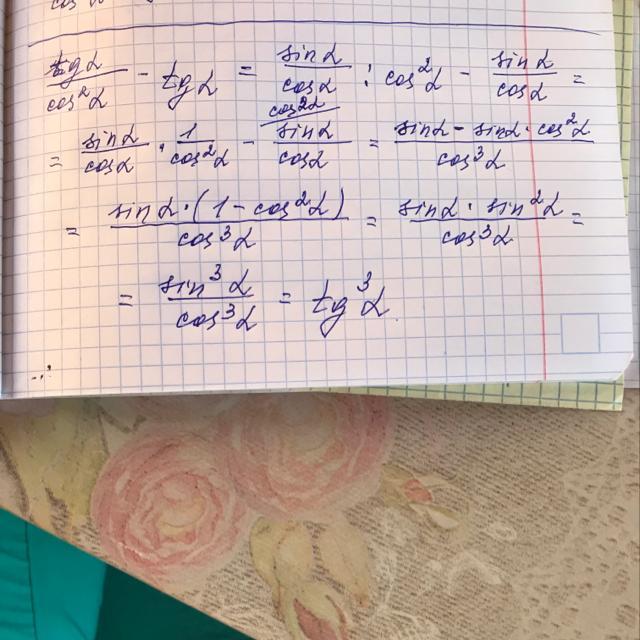 tg α / cos² α − tg α = sin α / cos α : cos² α − sin α / cos α =
= sin α / cos α · 1 / cos² α − cos² α / sin α / cos α = sin α − sin α · cos² α / cos³ α
= sin α · (1 − cos² α) / cos³ α = sin α · sin² α / cos³ α =
= sin³ α / cos³ α = tg³ α.